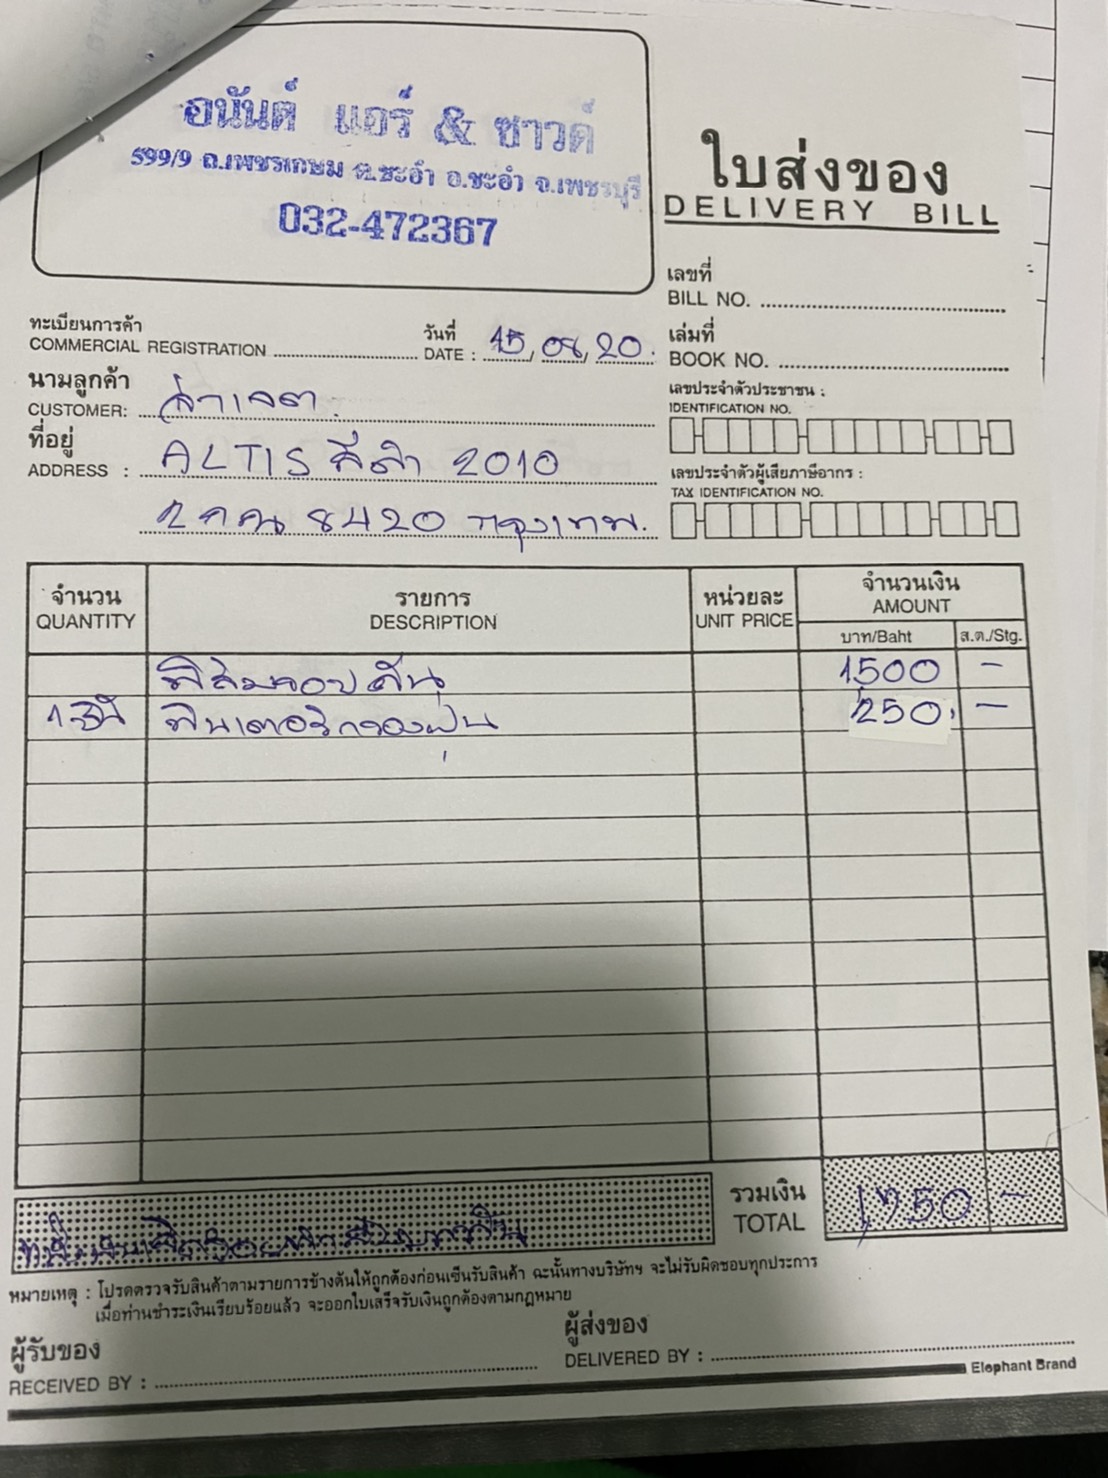 อนันต์ แอร์ & ซาวด์
599/9 ถ.เพชรเกษม ต.ชะอำ อ.ชะอำ จ.เพชรบุรี
032-472367
ใบส่งของ
DELIVERY BILL
เลขที่
BILL NO.
ทะเบียนการค้า
COMMERCIAL REGISTRATION
วันที่
DATE : 15, 08, 20.
เล่มที่
BOOK NO.
นามลูกค้า
CUSTOMER:
เลขประจำตัวประชาชน :
IDENTIFICATION NO.
ที่อยู่
ADDRESS : ALTIS สีดำ 2010
8420 กรุงเทพ.
เลขประจำตัวผู้เสียภาษีอากร :
TAX IDENTIFICATION NO.
จำนวน รายการ หน่วยละ จำนวนเงิน
QUANTITY DESCRIPTION UNIT PRICE AMOUNT
บาท/Baht ส.ต./Stg.
ฟิล์มรอบคัน 1500 -
ฟิลเตอร์กรองฝุ่น 250. -
รวมเงิน
TOTAL 1,750 -
หมายเหตุ : โปรดตรวจรับสินค้าตามรายการข้างต้นให้ถูกต้องก่อนเซ็นรับสินค้า ฉะนั้นทางบริษัทฯ จะไม่รับผิดชอบทุกประการ
เมื่อท่านชำระเงินเรียบร้อยแล้ว จะออกใบเสร็จรับเงินถูกต้องตามกฎหมาย
ผู้รับของ
RECEIVED BY :
ผู้ส่งของ
DELIVERED BY :
Elephant Brand